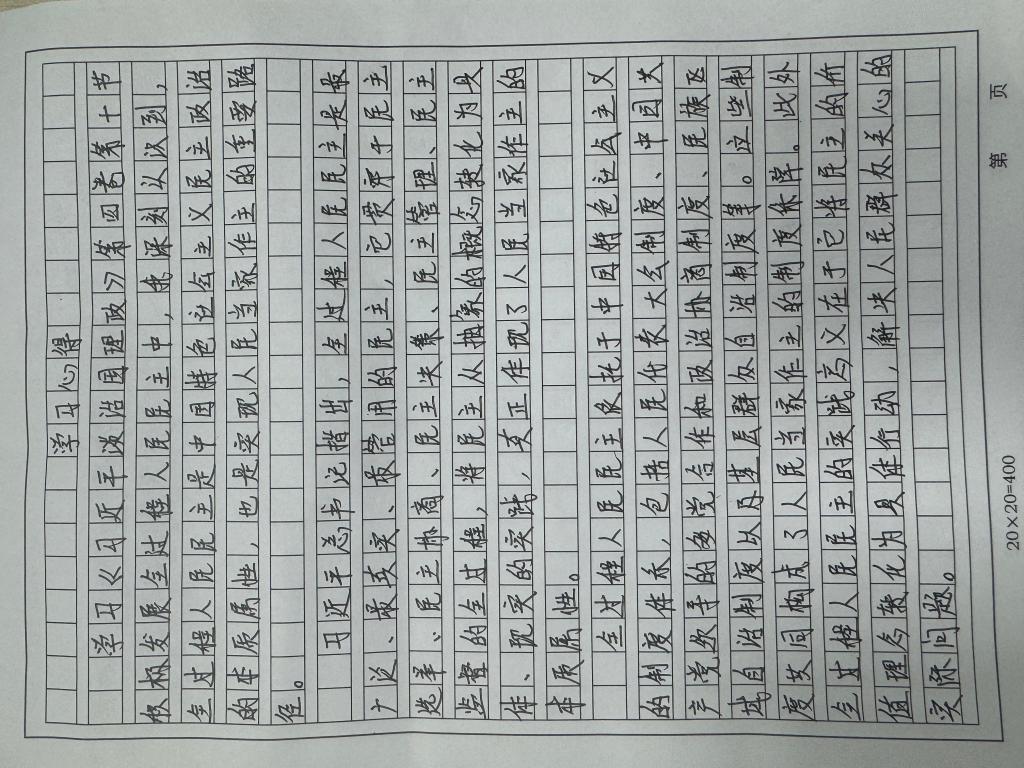 学习心得
学习《习近平谈治国理政》第四卷第十节
积极发展全过程人民民主中，我深刻认识到，
全过程人民民主是中国特色社会主义民主政治
的本质属性，也是实现人民当家作主的重要路
径。
习近平总书记指出，全过程人民民主是最
广泛、最真实、最管用的民主，它贯穿于民主
选举、民主协商、民主决策、民主管理、民主
监督的全过程，将民主从抽象的概念转化为具
体、现实的实践，真正体现了人民当家作主的
本质属性。
全过程人民民主依托于中国特色社会主义
的制度体系，包括人民代表大会制度、中国共
产党领导的多党合作和政治协商制度、民族区
域自治制度以及基层群众自治制度等。这些制
度共同构成了人民当家作主的制度体障。此外
全过程人民民主的实践意义在于它将民主的价
值理念转化为具体行动，解决人民群众关心的
实际问题。
20×20=400
第 页